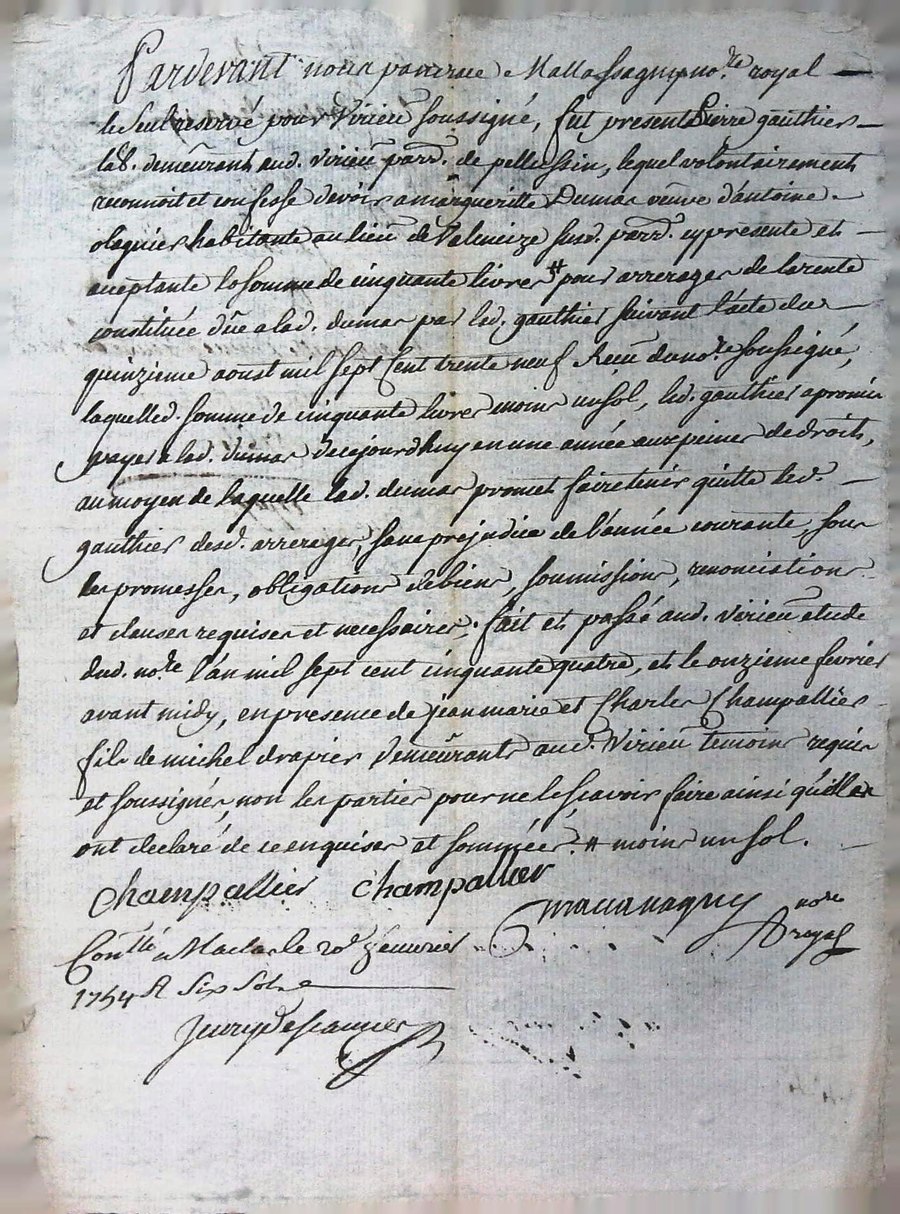 Pardevant nous pancrace Mallassagny no.re royal
le seul reservé pour Virieu soussigné, fut present Pierre gauthier
lab. demeurant aud. Virieu parr. de pellussin, lequel volontairement
reconnoit et confesse devoir a margueritte Dumas veuve d'antoine
olagnier habitante au lieu de Valencize susd. parr. cy presente et
acceptante la somme de cinquante livres # pour arrerages de la rente
constituée düe a lad. dumas par led. gauthier suivant l'acte du
quinzieme aoust mil sept cent trente neuf Reçu du no.re soussigné,
laquelled. somme de cinquante livres moins un sol, led. gauthier a promis
payer a lad. dumas de cejourdhuy en une année aux peines de droits,
au moyen de laquelle lad. dumas promet faire tenir quitte led.
gauthier desd. arrerages, sans prejudice de l'année courante, sous
les promesses, obligations de biens, soumissions, renonciations
et clauses requises et necessaires; fait et passé aud. Virieu etude
dud. no.re l'an mil sept cent cinquante quatre, et le onzieme fevrier
avant midy, en presence de jean marie et Charles Champallier
fils de michel drapier demeurants aud. Virieu temoins requis
et soussignés, non les parties pour ne le sçavoir faire ainsi qu'elles
ont declaré de ce enquises et sommées. # moins un sol.
Champallier Champallier
no.re
royal
Con.llé a Maclas le 20e feuvrier
1754 R six sols